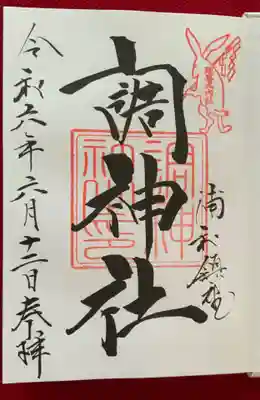 浦和鎮座
調神社
令和六年六月十二日奉拝